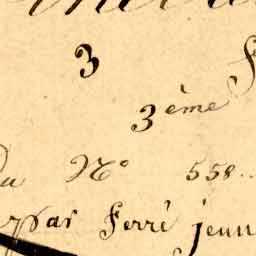 3
3ème
du N° 558..
par Ferré jeun